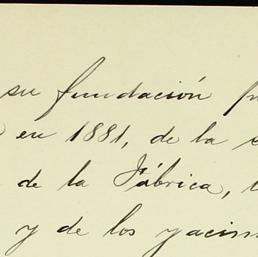 su fundación
en 1881, de la
de la Fábrica,
y de los